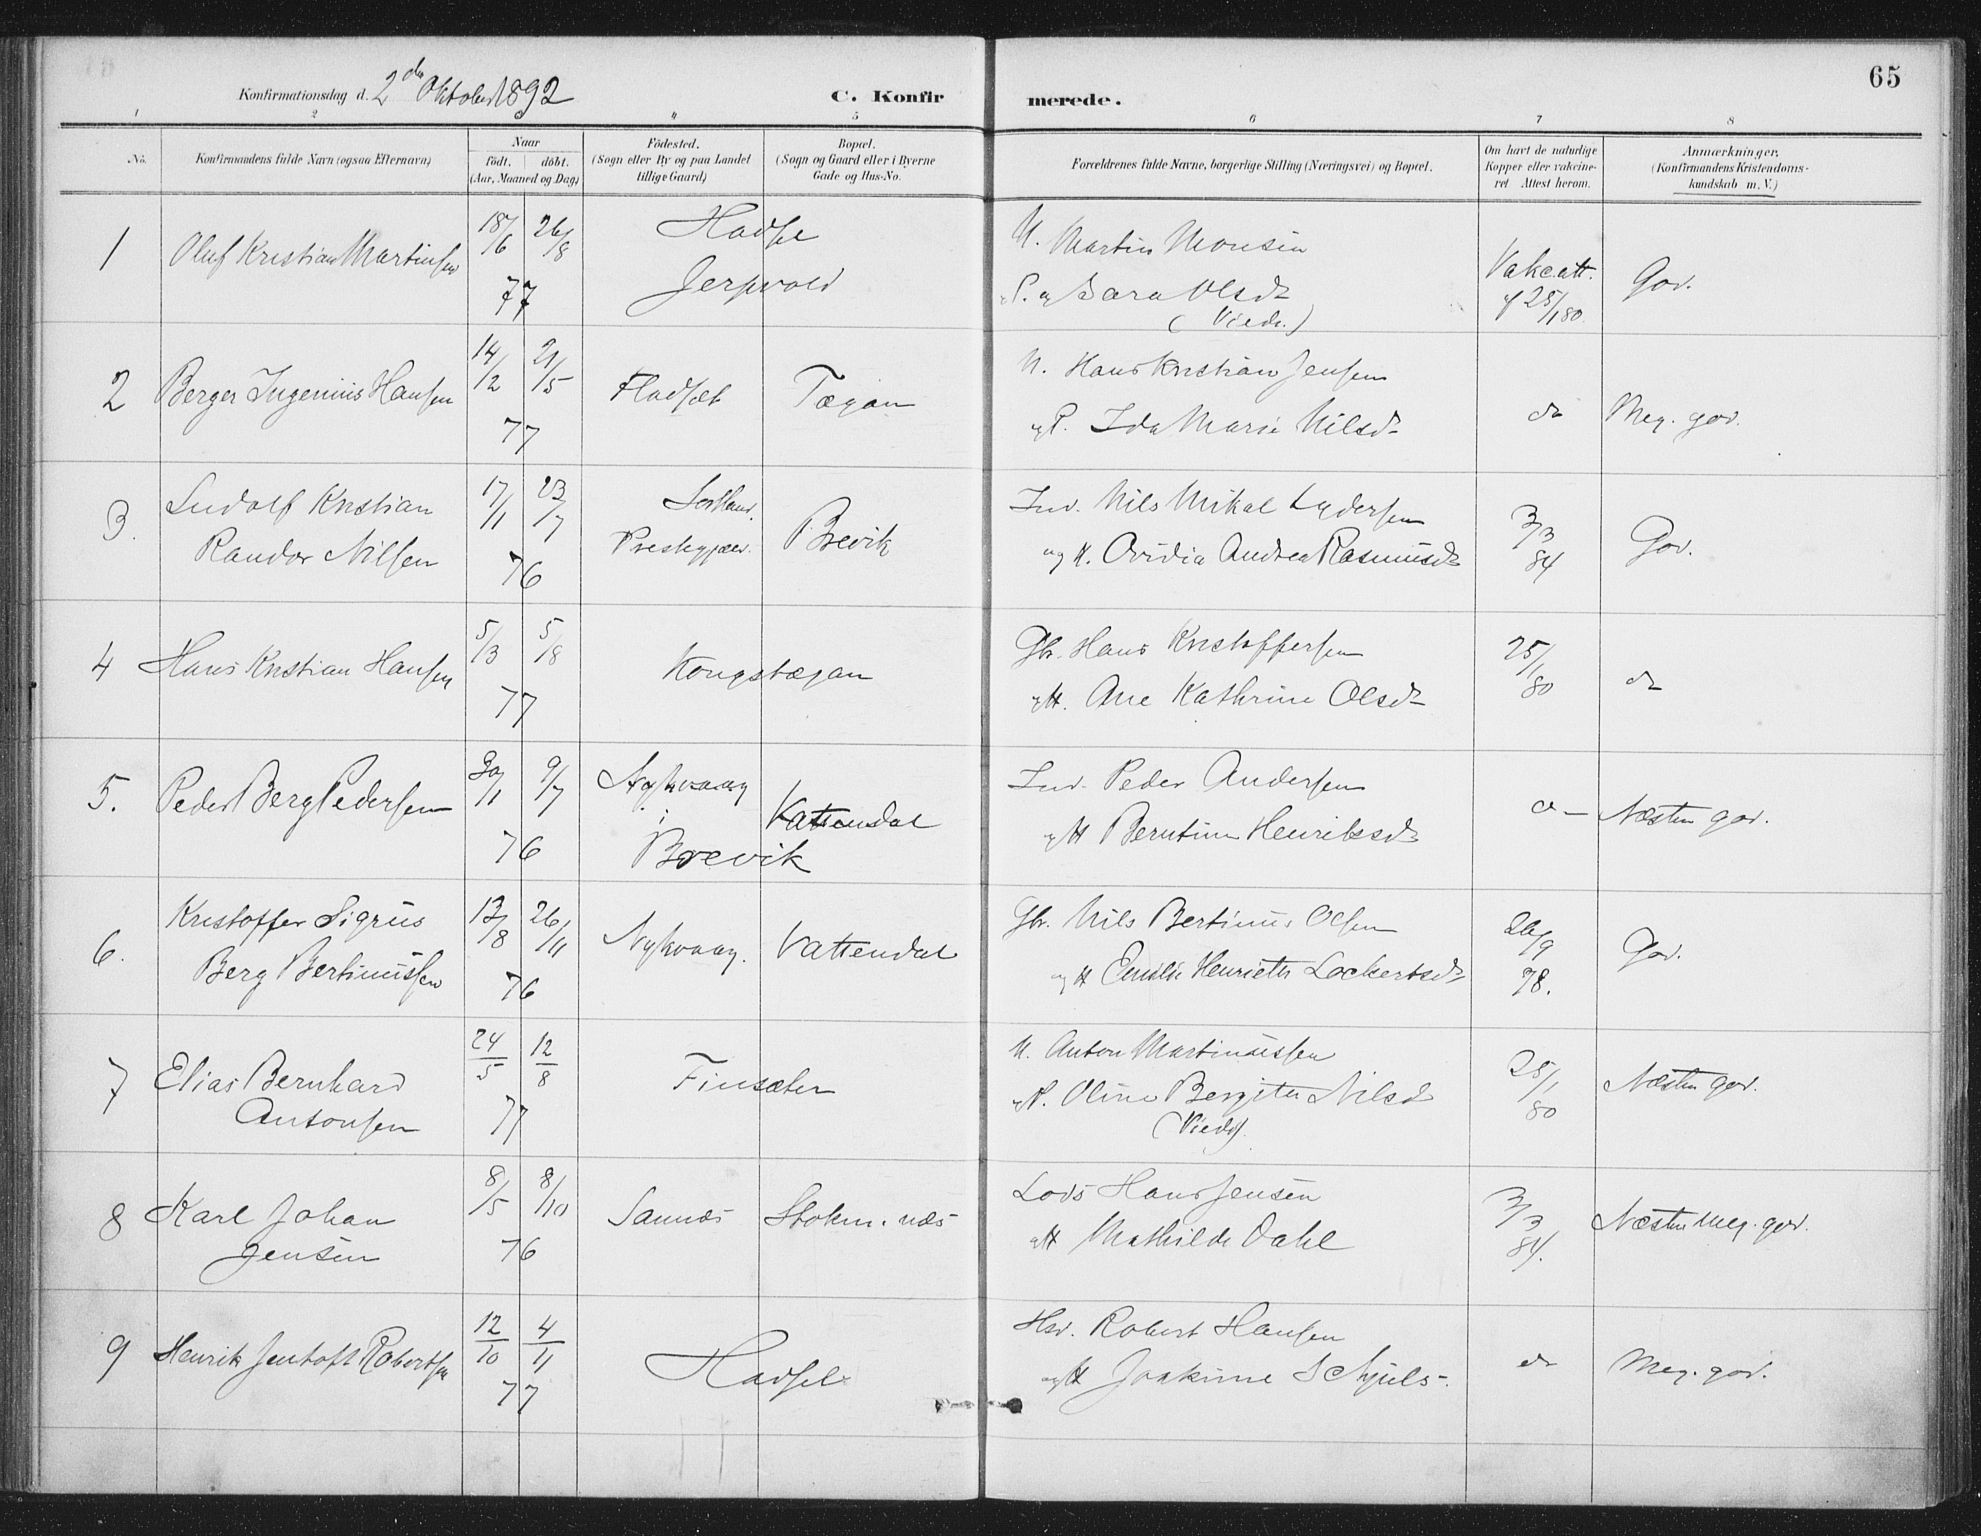 65
Konfirmationsdag d. 2den Oktober 1892
C. Konfirmerede.
1 2 3 4 5 6 7 8
No. Konfirmandens fulde Navn (ogsaa Efternavn) Naar født. døbt. (Aar, Maaned og Dag) Födested. (Sogn eller By og paa Landet tillige Gaard) Bopæl. (Sogn og Gaard eller i Byerne Gade og Hus-No. Forældrenes fulde Navne, borgerlige Stilling (Næringsvei) og Bopæl. Om havt de naturlige Kopper eller vakcineret Attest herom. Anmærkninger. (Konfirmandens Kristendomskundskab m. V.)
1 Oluf Kristian Martinsen 18/6 26/8 77 Hadsel Jerpvold
U. Martin Monsen
P. og Sara Olsd.
Vakc.att. af 25/1 80. God.
2 Berger Ingenius Hansen 14/2 21/5 77 Fladsæt Tægan
U. Hans Kristian Jensen
og P. Ida Marie Nilsd.
do Meg. god.
3. Ludolf Kristian
Randor Nilsen 17/11 23/7 76 Sortland Prestegjæld. Brevik
Ind. Nils Mikal Lydersen
og H. Ovidia Andrea Rasmusd.
3/3 84 God.
4 Hans Kristian Hansen 5/3 5/8 77 Kongstægan
Gbr. Hans Kristoffersen
og H. Ane Kathrine Olsd.
25/1 80 do
5. Peder Berg Pedersen 30/1 9/7 76 Nykvaag i Brevik Vattendal
Ind. Peder Andersen
og H Berntine Henriksd.
do Næsten god.
6. Kristoffer Sigrus
Berg Bertinussen 13/8 26/11 76 Nykvaag. Vattendal
Gbr. Nils Bertinus Olsen
og H Emilie Henriette Lockertsd.
26/9 78. God.
7 Elias Bernhard
Antonsen 24/5 12/8 77 Finsæter
U. Anton Martinussen
og P. Oline Bergitte Nilsd.
25/1 80 Næsten god.
8 Karl Johan
Jensen 8/5 8/10 76 Sannæs Stokm.næs
Lods Hans Jensen
og H Mathilde Dahl
3/3 84. Næsten Meg. god.
9 Henrik Jentoft Robertsen 12/10 4/11 77 Hadsel
Robert Hansen
og H Joakime
do Meg. god.